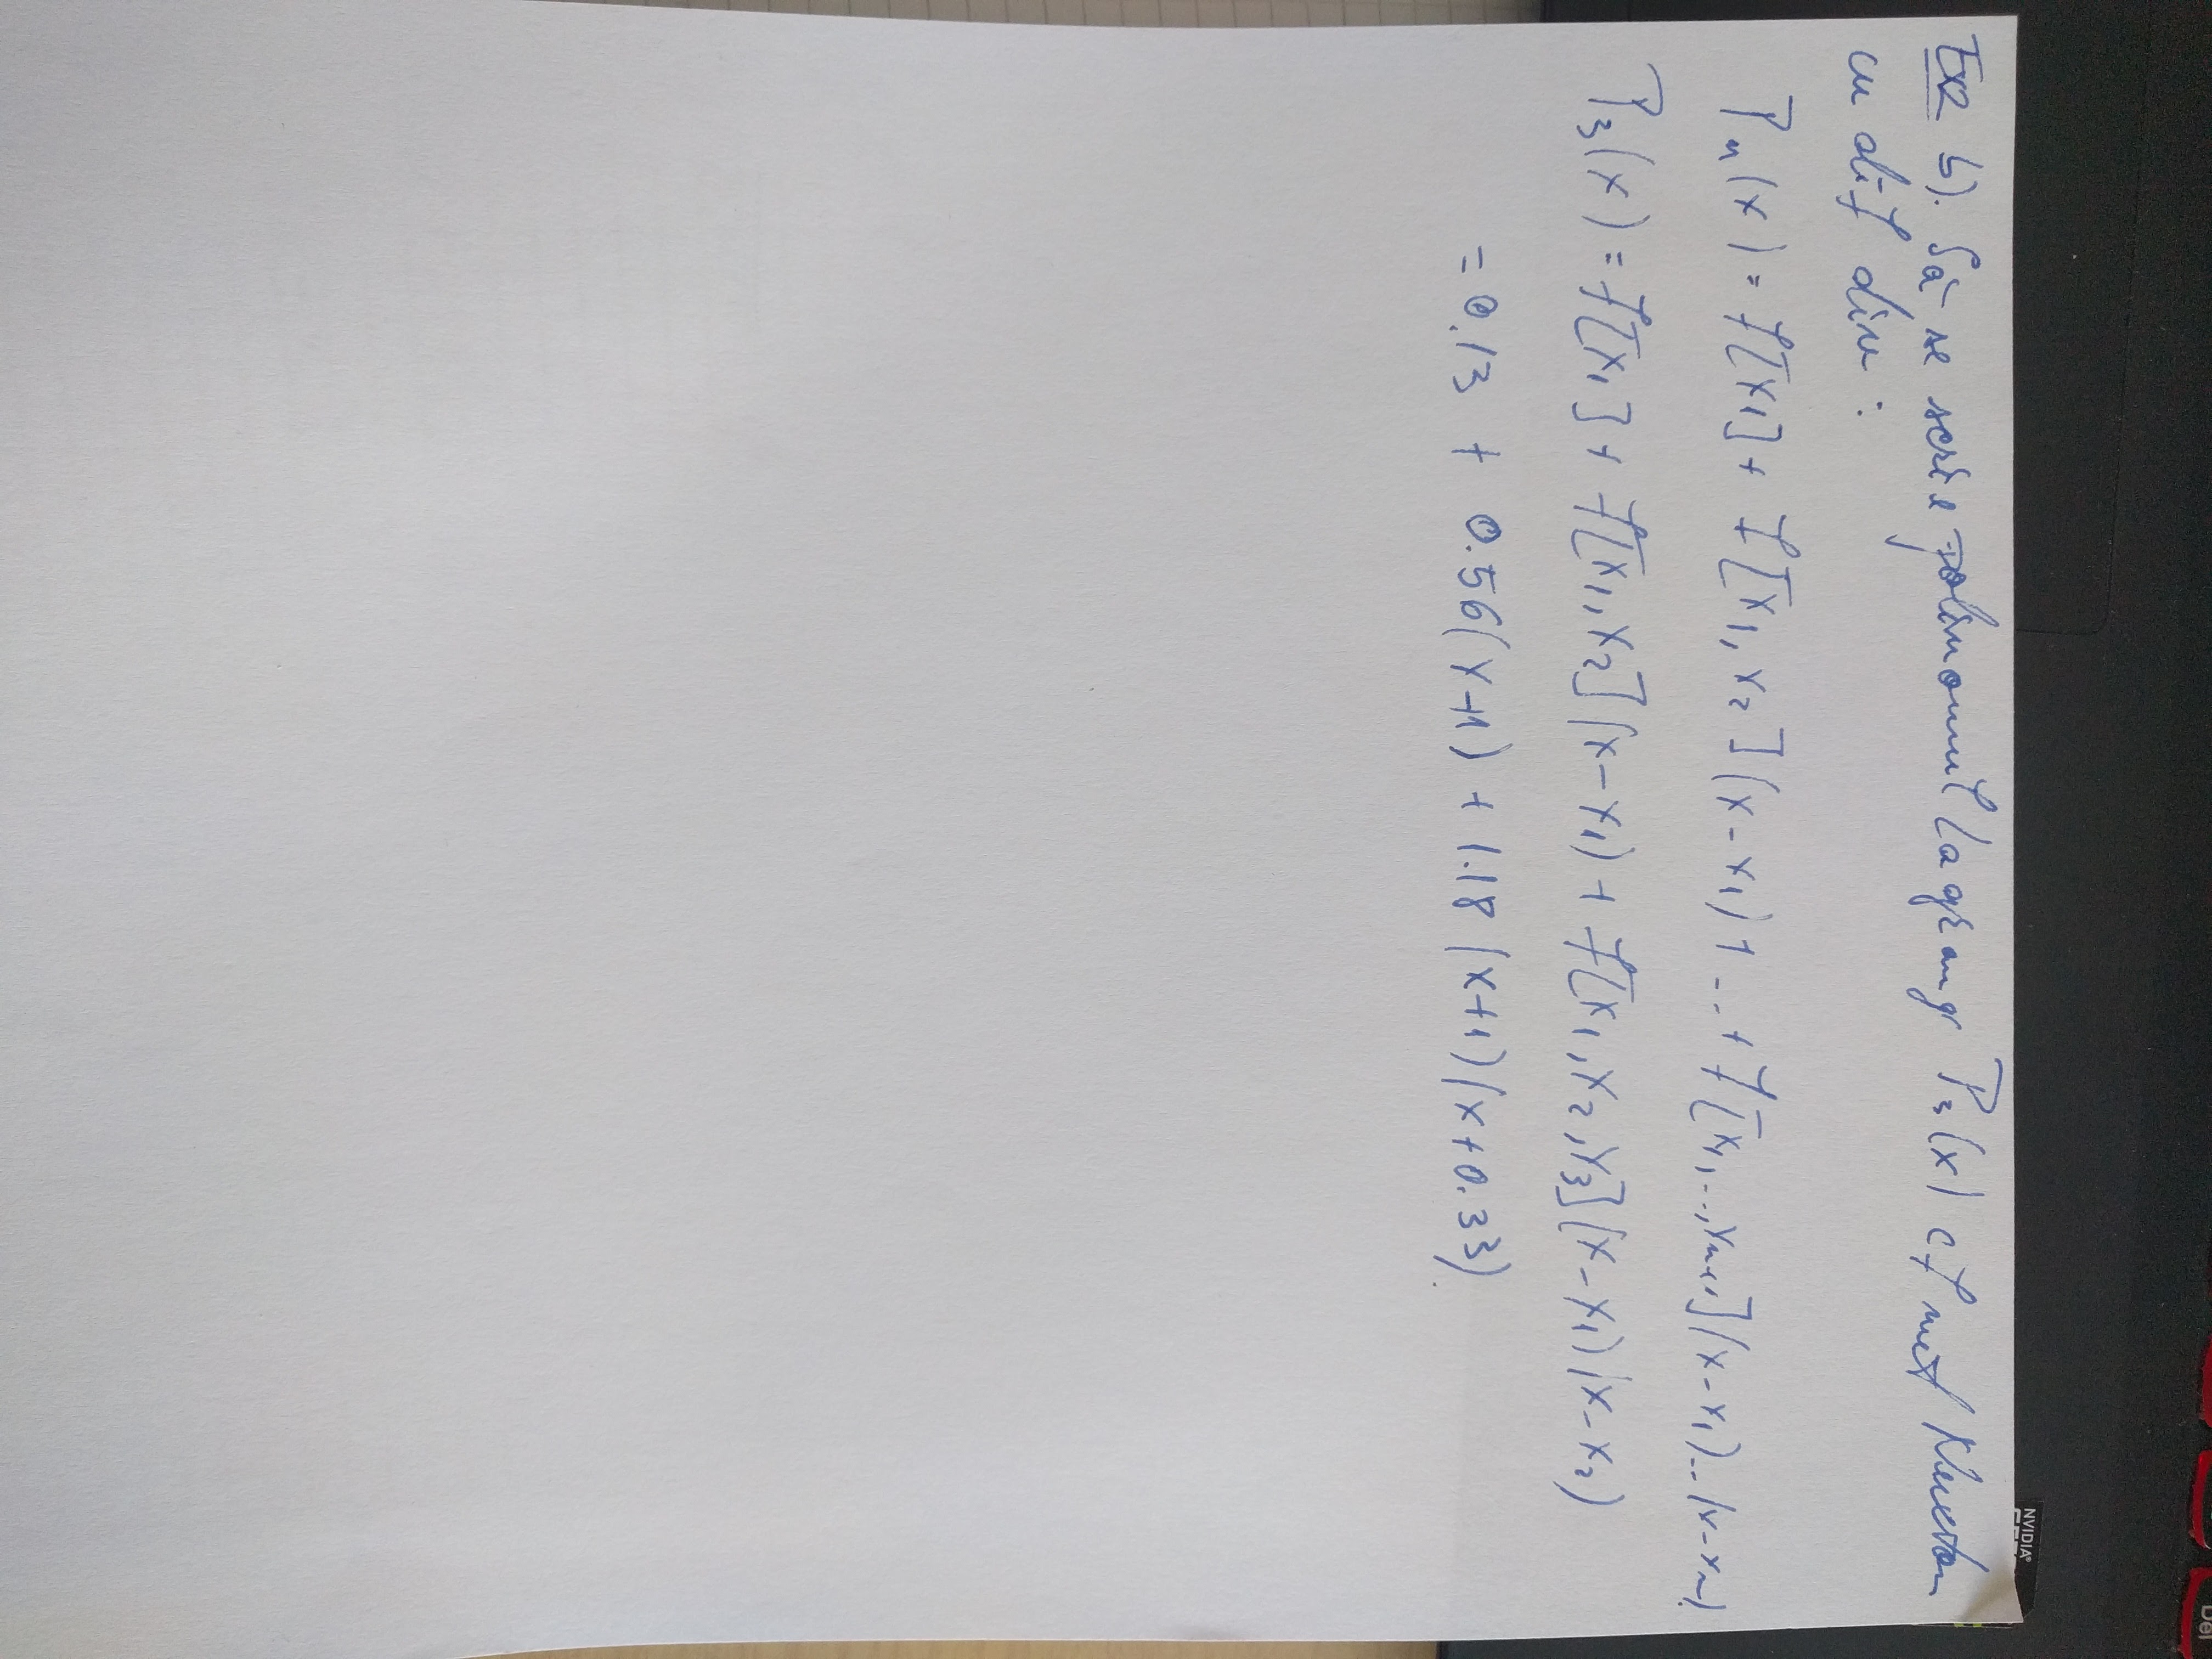 Ex2 b). Să se scrie polinomul Lagrang P₃(x) cf met Newton
cu dif div :
Pₙ(x) = f[x₁] + f[x₁, x₂](x - x₁) + ... + f[x₁, ..., xₙ₊₁](x - x₁)...(x - xₙ)
P₃(x) = f[x₁] + f[x₁, x₂](x - x₁) + f[x₁, x₂, x₃](x - x₁)(x - x₂)
= 0.13 + 0.56(x+1) + 1.18(x+1)(x+0.33)
NVIDIA®
Del